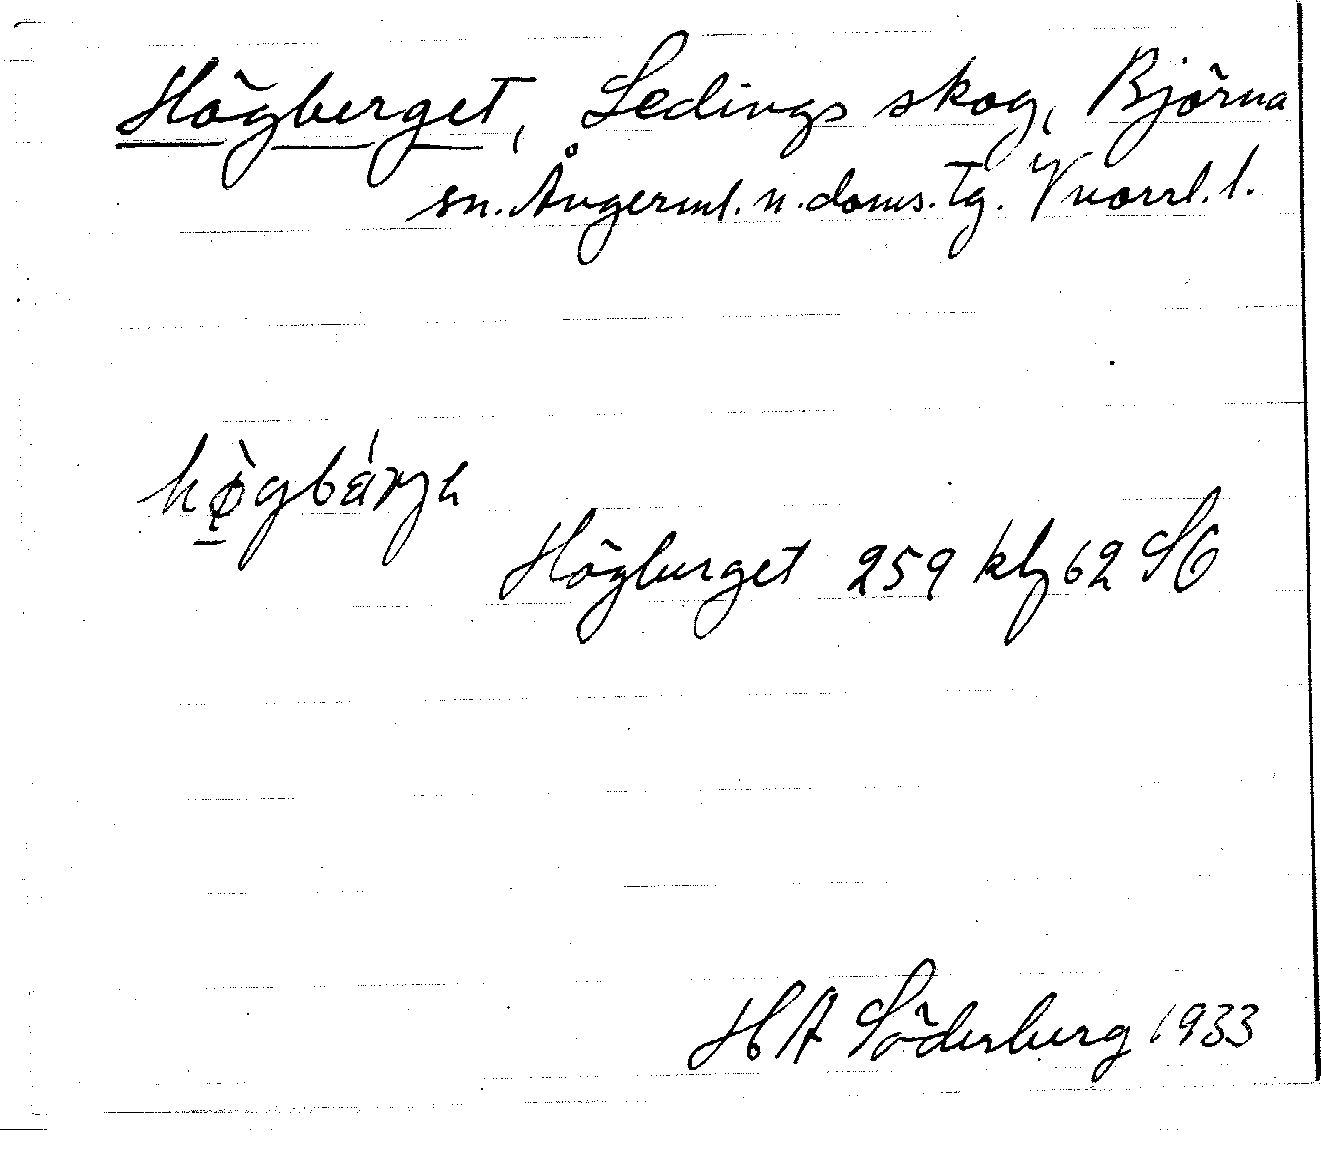 Högberget, Ledings skog, Björna
sn. Ångerml. n. doms. tg. Vnorrl. l.
Högberget 259 kbl 62 SO
H A Söderberg 1933